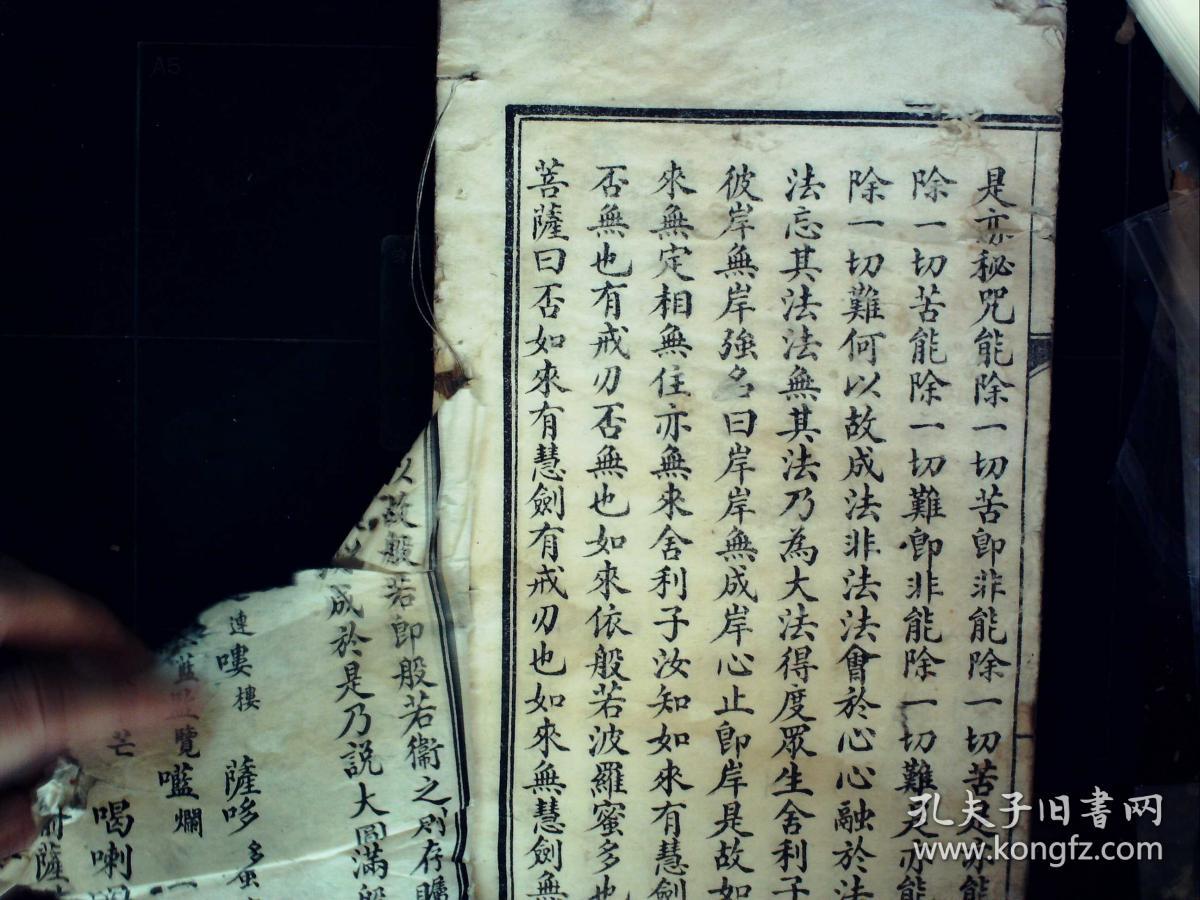 是亦秘咒能除一切苦即非能除一切苦是亦能
除一切苦能除一切難即非能除一切難是亦能
除一切難何以故成法非法法會於心心融於法
法忘其法法無其法乃為大法得度眾生舍利子
彼岸無岸強名曰岸岸無成岸心止即岸是故如
來無定相無住亦無來舍利子汝知如來有慧劍
否無也有戒刃否無也如來依般若波羅蜜多也
菩薩曰否如來有慧劍有戒刃也如來無慧劍無
以故般若即般若衞之則存曠
成於是乃說大圓滿般
連嘍樓 薩哆多
藍覽嚂爛
芒 喝喇
薩
A5
孔夫子旧書网
www.kongfz.com